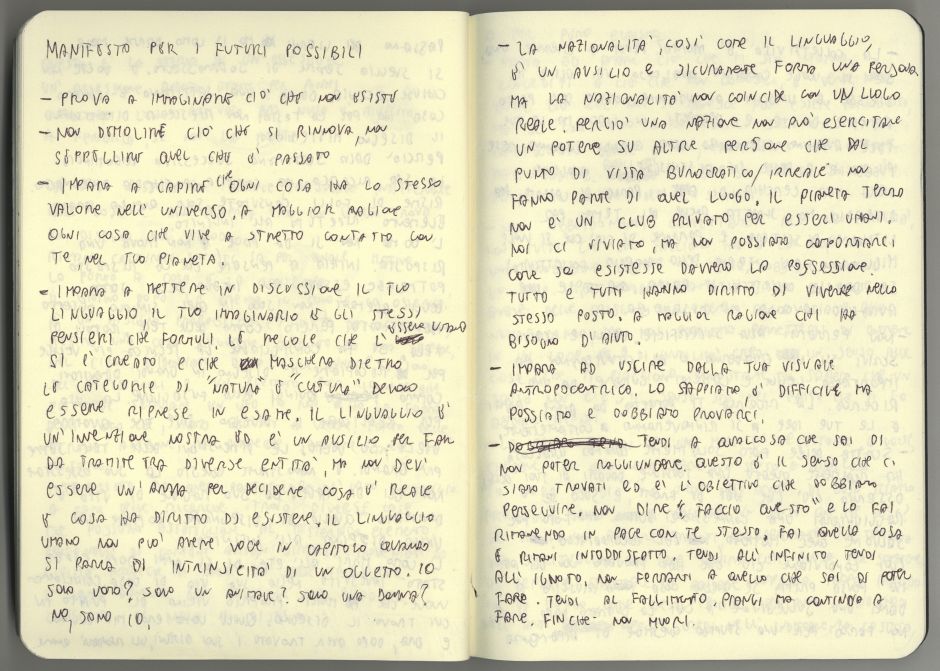 MANIFESTO PER I FUTURI POSSIBILI
- PROVA A IMMAGINARE CIO' CHE NON ESISTE
- NON DEMOLIRE CIO' CHE SI RINNOVA, NON
SEPPELLIRE QUEL CHE E' PASSATO
- IMPARA A CAPIRE CHE OGNI COSA HA LO STESSO
VALORE NELL'UNIVERSO, A MAGGIOR RAGIONE
OGNI COSA CHE VIVE A STRETTO CONTATTO CON
TE, NEL TUO PIANETA.
- IMPARA A METTERE IN DISCUSSIONE IL TUO
LINGUAGGIO IL TUO IMMAGINARIO E GLI STESSI
PENSIERI CHE FORMULI. LE REGOLE CHE L'ESSERE UMANO
SI E' CREATO E CHE MASCHERA DIETRO
LE CATEGORIE DI "NATURA" E "CULTURA" DEVONO
ESSERE RIPRESE IN ESAME. IL LINGUAGGIO E'
UN'INVENZIONE NOSTRA ED E' UN AUSILIO PER FAR
DA TRAMITE TRA DIVERSE ENTITA', MA NON DEV'
ESSERE UN'ARMA PER DECIDERE COSA E' REALE
E COSA HA DIRITTO DI ESISTERE. IL LINGUAGGIO
UMANO NON PUO' AVERE VOCE IN CAPITOLO QUANDO
SI PARLA DI INTRINSICITA' DI UN OGGETTO. IO
SONO UOMO? SONO UN ANIMALE? SONO UNA DONNA?
NO, SONO IO.
- LA NAZIONALITA', COSI' COME IL LINGUAGGIO,
E' UN AUSILIO E SICURAMENTE FORMA UNA PERSONA
MA LA NAZIONALITA' NON COINCIDE CON UN LUOGO
REALE. PERCIO' UNA NAZIONE NON PUO' ESERCITARE
UN POTERE SU ALTRE PERSONE CHE DAL
PUNTO DI VISTA BUROCRATICO/IRREALE NON
FANNO PARTE DI QUEL LUOGO. IL PIANETA TERRA
NON E' UN CLUB PRIVATO PER ESSERI UMANI.
NOI CI VIVIAMO, MA NON POSSIAMO COMPORTARCI
COME SE ESISTESSE DAVVERO LA POSSESSIONE.
TUTTO E TUTTI HANNO DIRITTO DI VIVERE NELLO
STESSO POSTO. A MAGGIOR RAGIONE CHI HA
BISOGNO DI AIUTO.
- IMPARA AD USCIRE DALLA TUA VISUALE
ANTROPOCENTRICA. LO SAPPIAMO E' DIFFICILE MA
POSSIAMO E DOBBIAMO PROVARCI.
- TENDI A QUALCOSA CHE SAI DI
NON POTER RAGGIUNGERE. QUESTO E' IL SENSO CHE CI
SIAMO TROVATI ED E' L'OBIETTIVO CHE DOBBIAMO
PERSEGUIRE. NON DIRE "FACCIO QUESTO" E LO FAI
RIMANENDO IN PACE CON TE STESSO. FAI QUELLA COSA
E RIMANI INSODDISFATTO. TENDI ALL'INFINITO, TENDI
ALL'IGNOTO. NON FERMARTI A QUELLO CHE SAI DI POTER
FARE. TENDI AL FALLIMENTO, PIANGI MA CONTINUA A
FARE. FINCHE' NON MUORI.